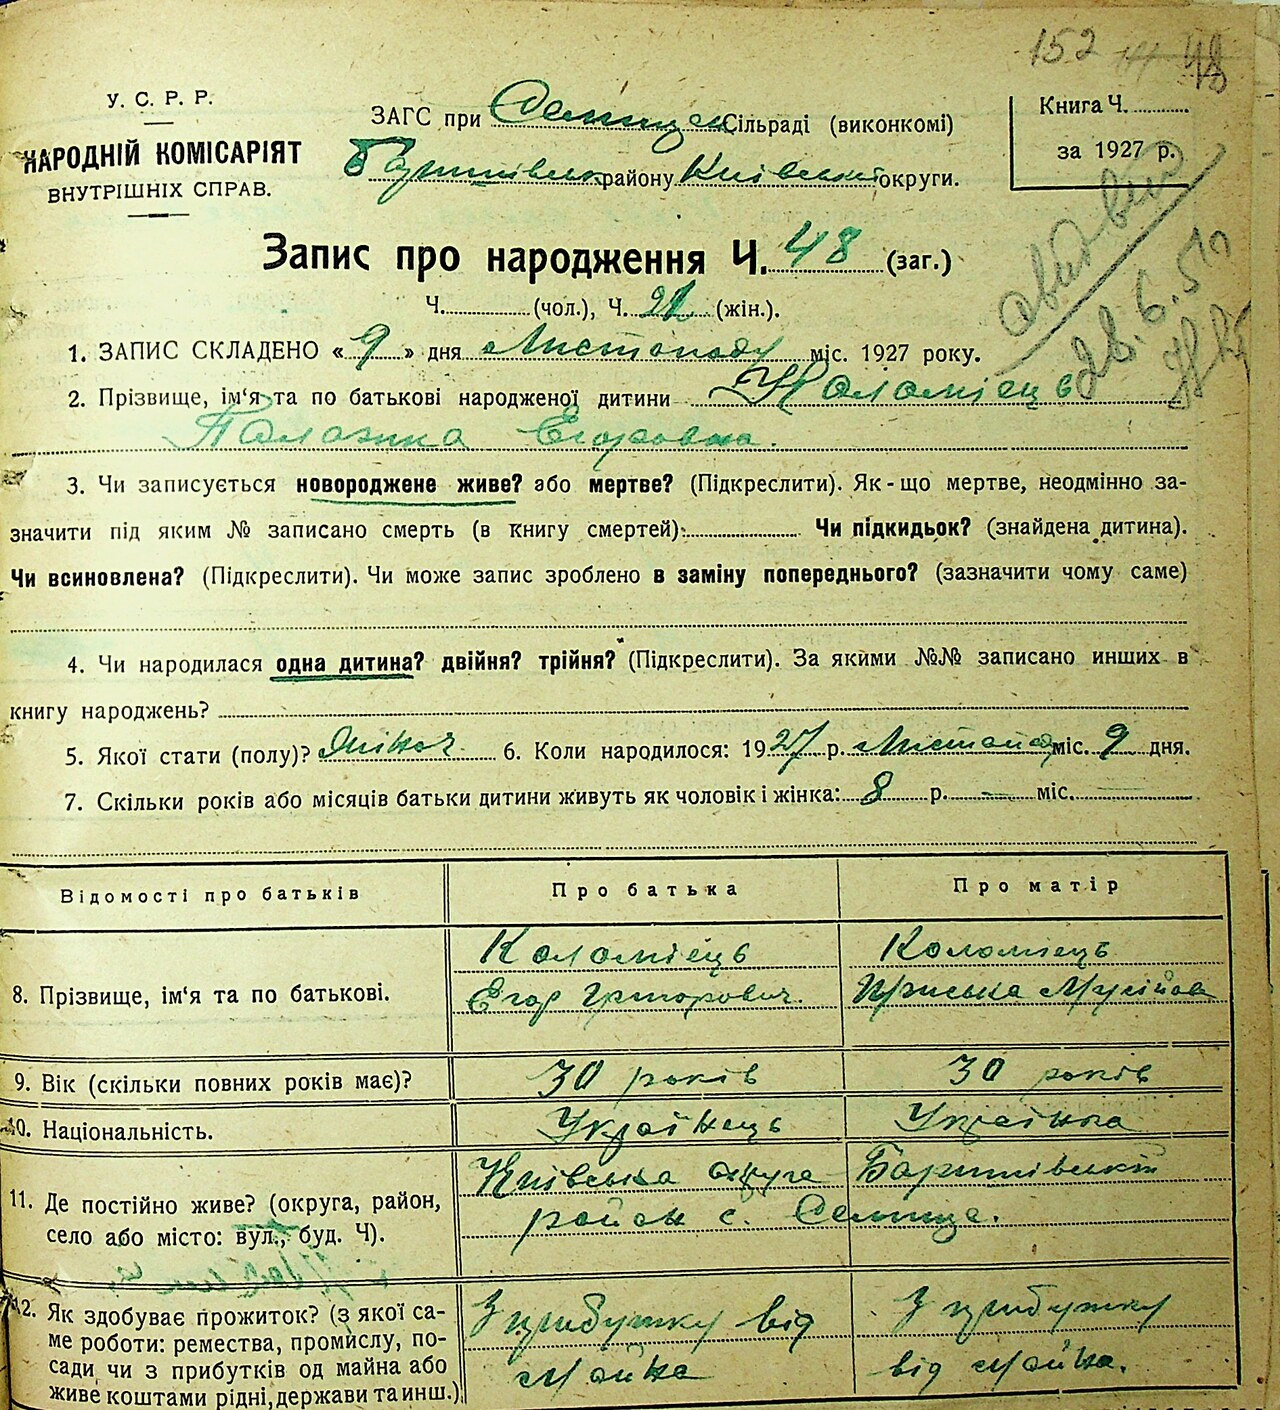 152 48
У. С. Р. Р.
НАРОДНІЙ КОМІСАРІЯТ
ВНУТРІШНІХ СПРАВ.
ЗАГС при Селищ. Сільраді (виконкомі)
Баришівськ. району Київської округи.
Книга Ч.
за 1927 р.
Запис про народження Ч. 48 (заг.)
Ч. (чол.), Ч. 21 (жін.).
28.6.51
1. ЗАПИС СКЛАДЕНО « 9 » дня Листопаду міс. 1927 року.
2. Прізвище, ім‘я та по батькові народженої дитини Коломієць
Палазька Єгоровна.
3. Чи записується новороджене живе? або мертве? (Підкреслити). Як-що мертве, неодмінно за-
значити під яким № записано смерть (в книгу смертей): Чи підкидьок? (знайдена дитина).
Чи всиновлена? (Підкреслити). Чи може запис зроблено в заміну попереднього? (зазначити чому саме)
4. Чи народилася одна дитина? двійня? трійня? (Підкреслити). За якими №№ записано инших в
книгу народжень?
5. Якої стати (полу)? жіноч. 6. Коли народилося: 1927 р. Листопад міс. 9 дня.
7. Скільки років або місяців батьки дитини живуть як чоловік і жінка: 8 р. — міс. —
Відомості про батьків Про батька Про матір
8. Прізвище, ім‘я та по батькові. Коломієць Коломієць
Єгор Григорович. Пріська Мусійов
9. Вік (скільки повних років має)? 30 років 30 років
10. Національність. Українець Українка
11. Де постійно живе? (округа, район, Київська округа Баришівський
село або місто: вул., буд. Ч). район с. Селище.
12. Як здобуває прожиток? (з якої са- З прибутку від З прибутку
ме роботи: ремества, промислу, по- майна від майна.
сади чи з прибутків од майна або
живе коштами рідні, держави та инш.)